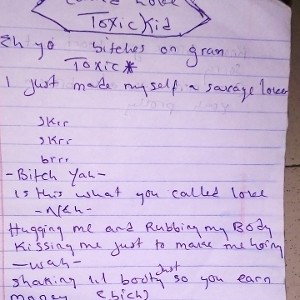 called love
Toxic Kid
Eh yo bitches on gran
Toxic*
I just made myself a savage lover
skrr
skrr
brrr
-Bitch Yah-
Is this what you called love
-Nah-
Hugging me and Rubbing my Body
Kissing me just to make me horny
-wah-
shaking lil booty Just so you earn
money (bich)